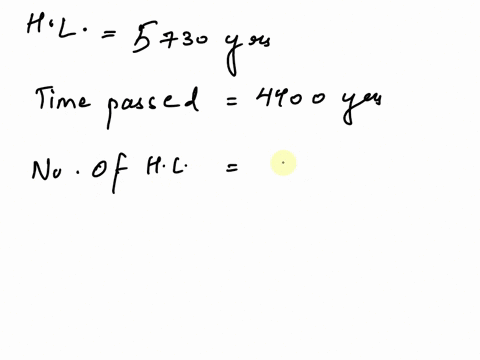 H.L. = 5730 yrs
Time passed = 4900 yrs
No. of H.L. =